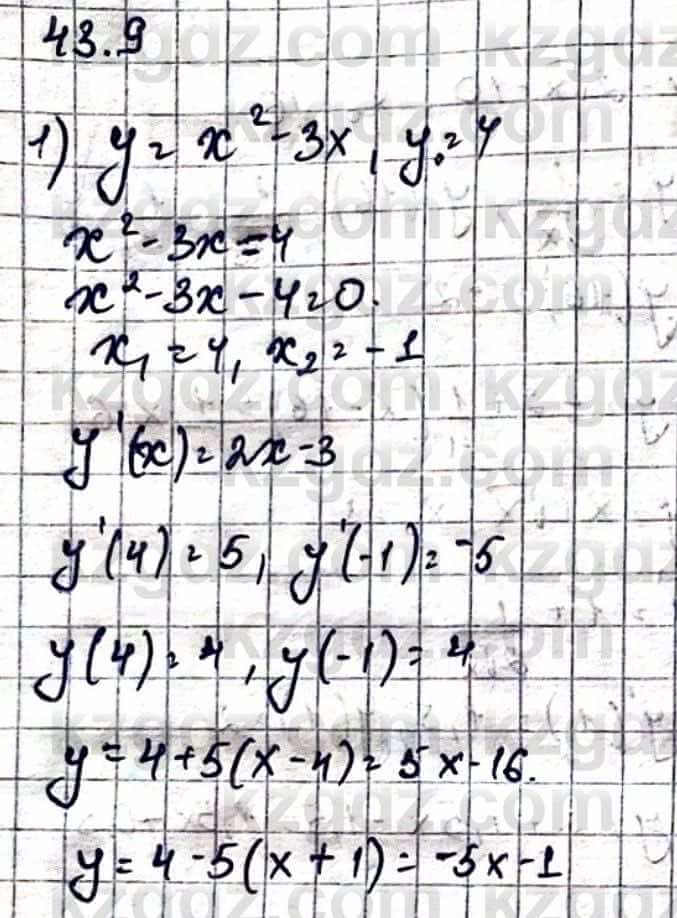 43.9
1) y = x² - 3x, y₀ = 4
x² - 3x = 4
x² - 3x - 4 = 0.
x₁ = 4, x₂ = -1
y'(x) = 2x - 3
y'(4) = 5, y'(-1) = -5
y(4) = 4, y(-1) = 4
y = 4 + 5(x - 4) = 5x - 16.
y = 4 - 5(x + 1) = -5x - 1